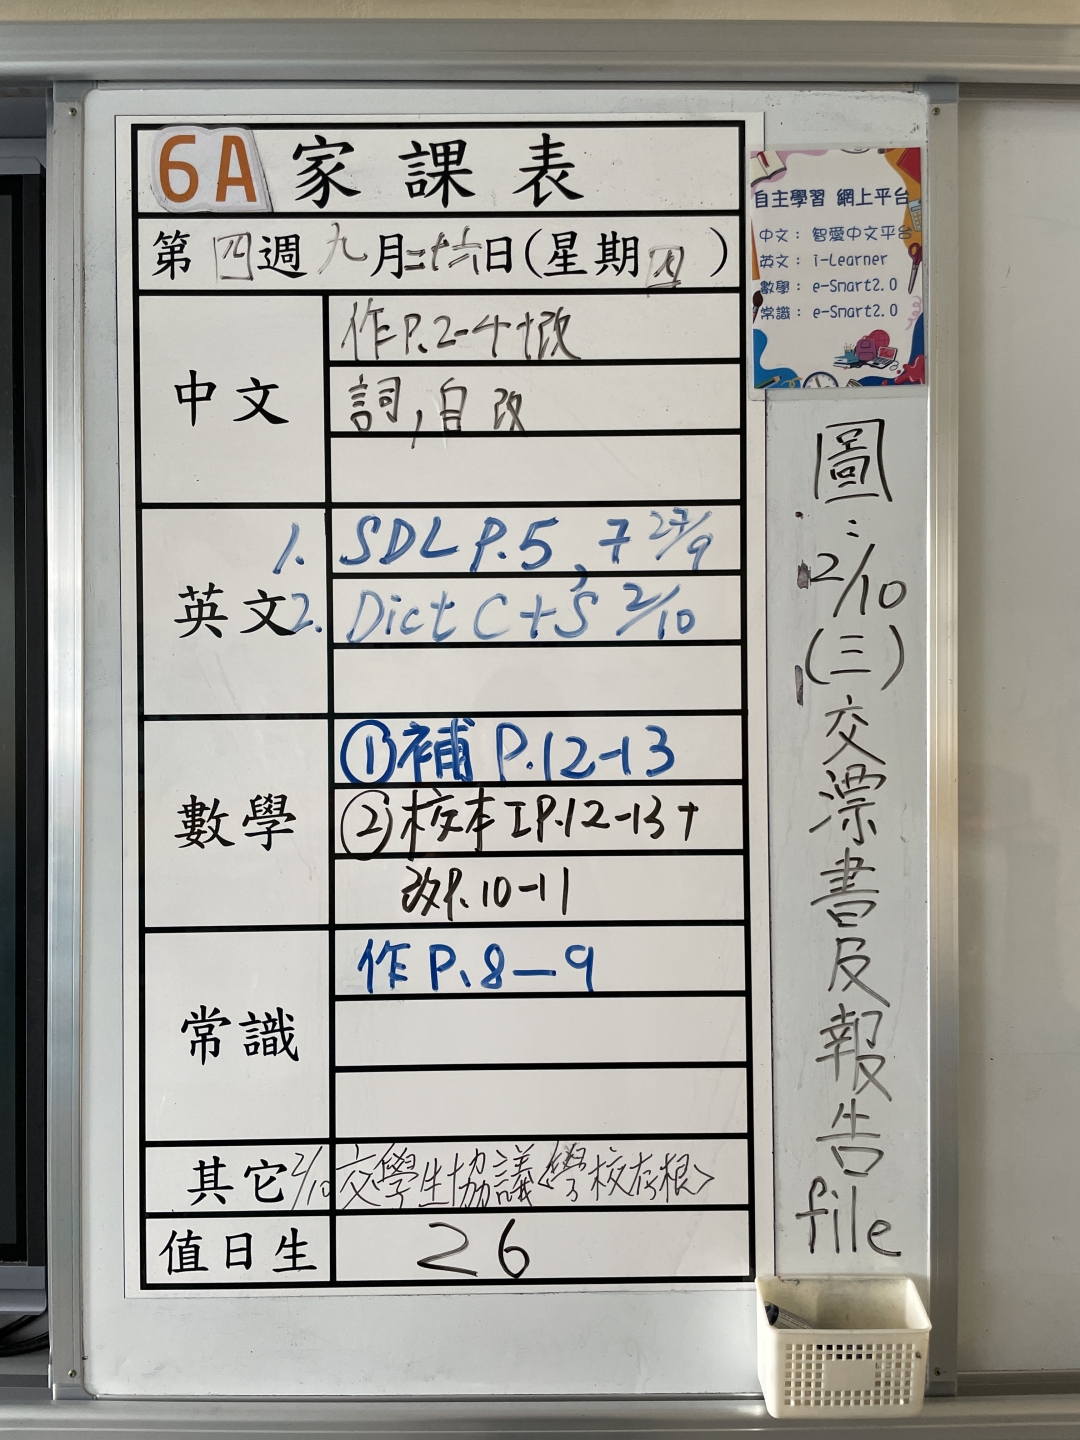 6A 家課表
第四週九月二十六日(星期四)
中文
作P.2-4+改
詞,自改
英文
1. SDL P.5, 7 27/9
2. Dict C+S 2/10
數學
①補 P.12-13
②校本工P.12-13+
改P.10-11
常識
作P.8-9
其它
2/10交學生協議<學校存根>
值日生
26
自主學習 網上平台
中文: 智愛中文平台
英文: i-Learner
數學: e-Smart2.0
常識: e-Smart2.0
圖:2/10(三)交漂書及報告file